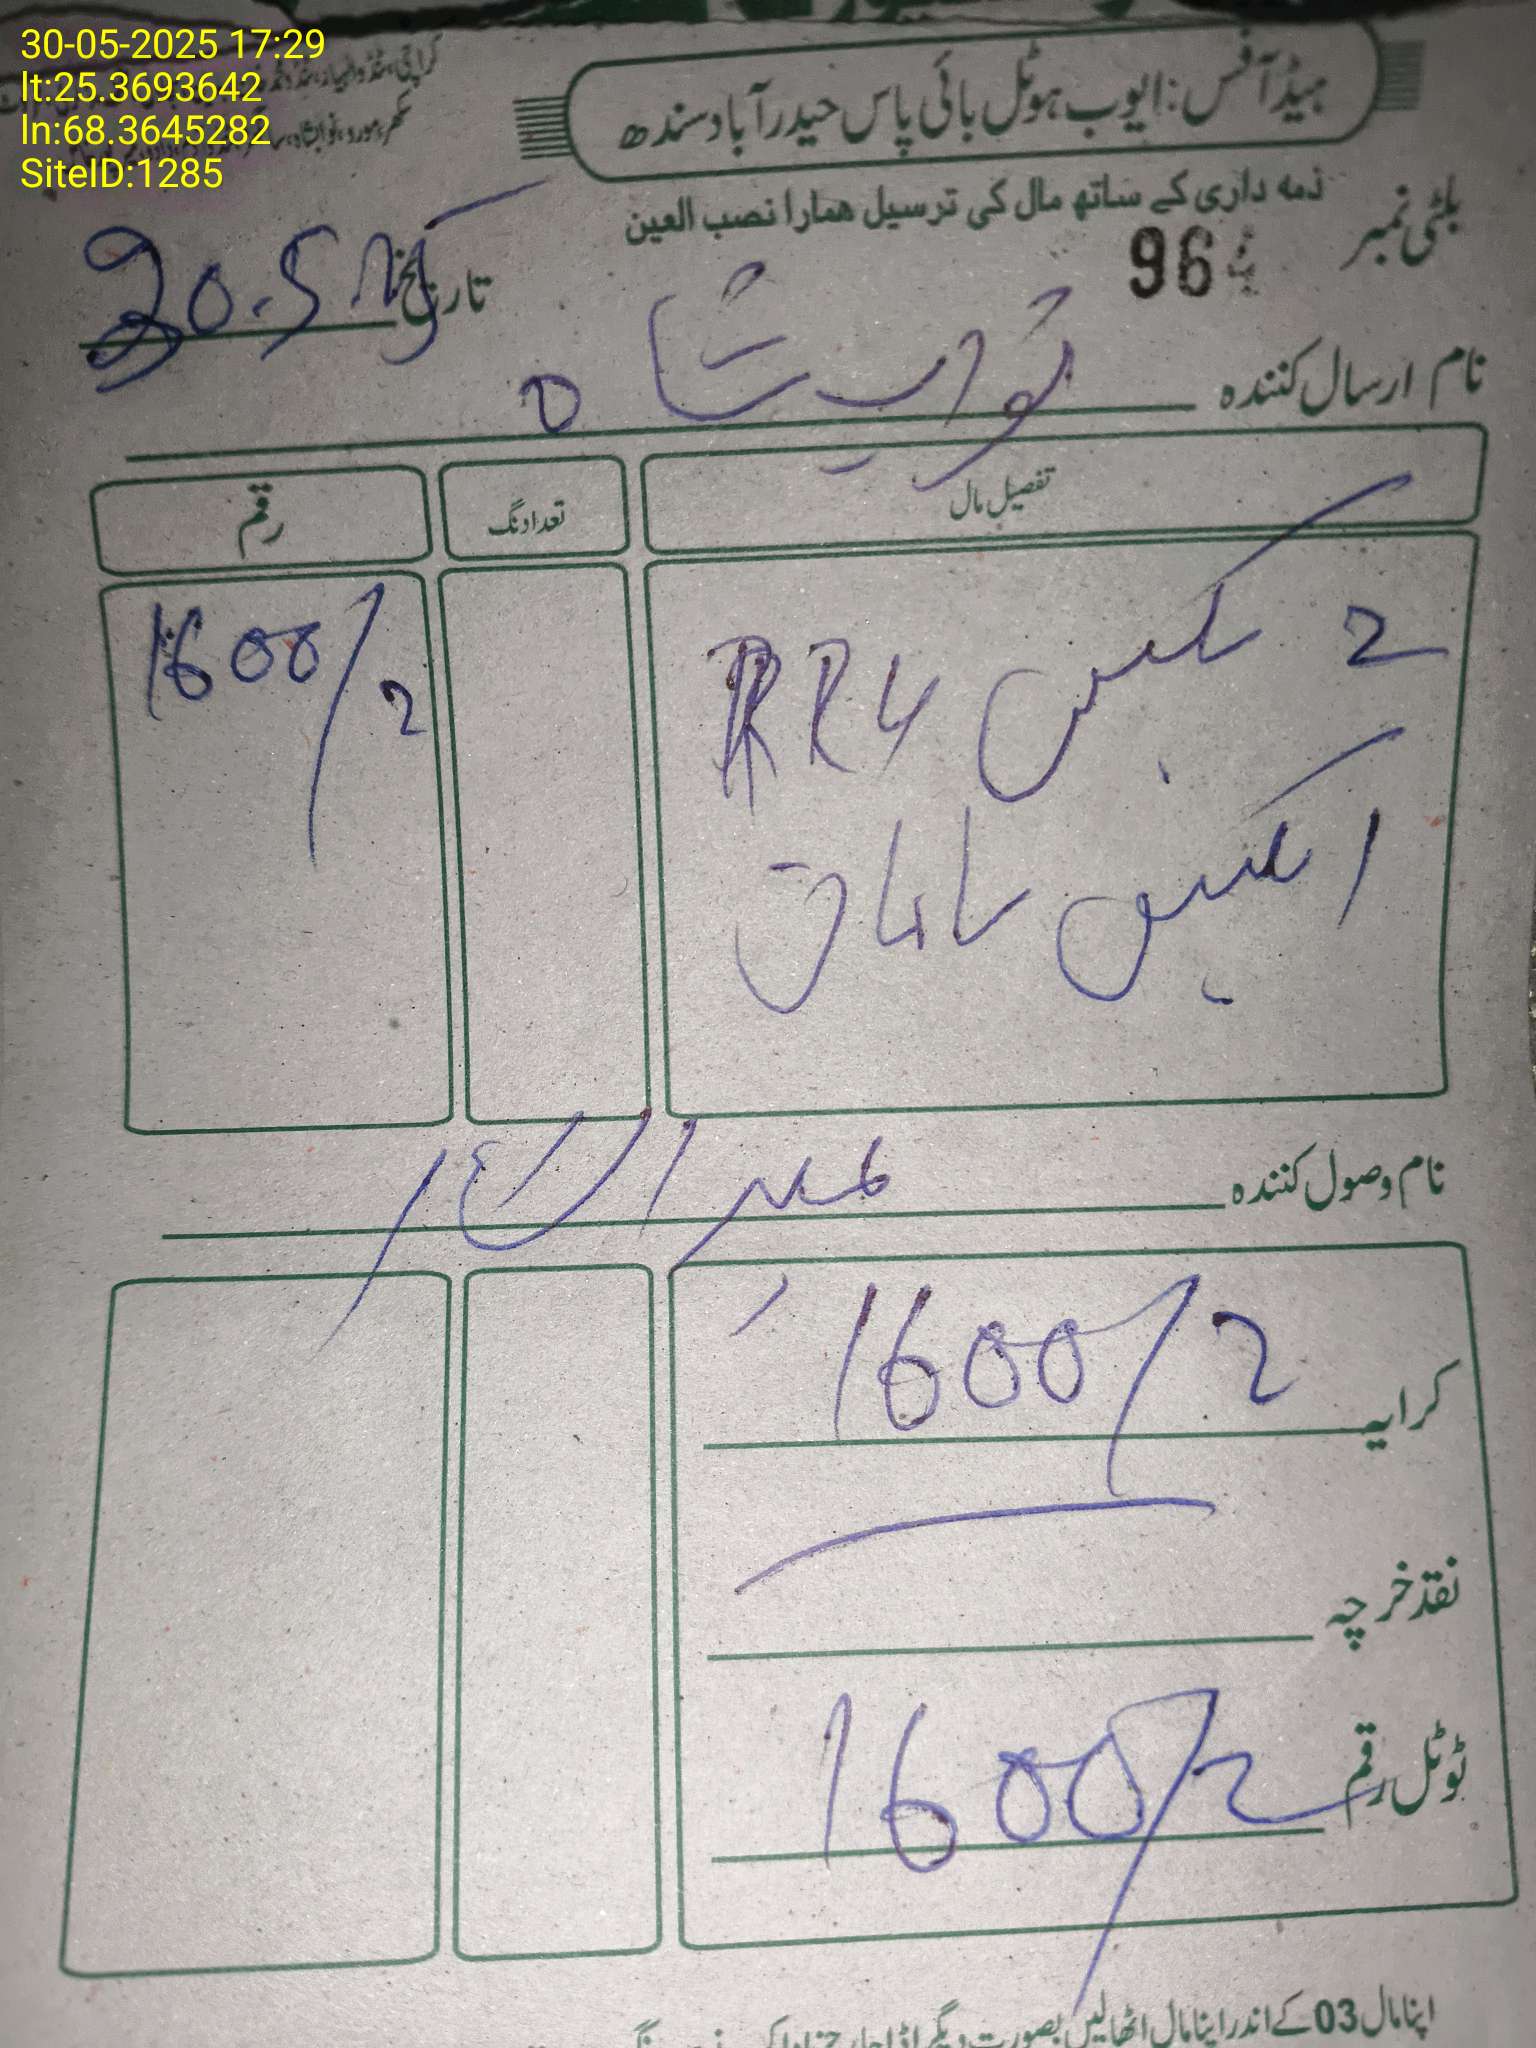 30-05-2025 17:29
lt:25.3693642
ln:68.3645282
SiteID:1285
ہیڈ آفس: ایوب ہوٹل بائی پاس حیدرآباد سندھ
ذمہ داری کے ساتھ مال کی ترسیل ہمارا نصب العین
بلٹی نمبر 96
تاریخ 30.5
نام ارسال کنندہ نواب شاہ
تفصیل مال تعداد نگ رقم
2 بکس RR 1600/2
1 بکس سامان
نام وصول کنندہ
کرایہ 1600/2
نقد خرچہ
ٹوٹل رقم 1600/2
اپنا مال 03 کے اندر اپنا مال اٹھالیں بصورت دیگر